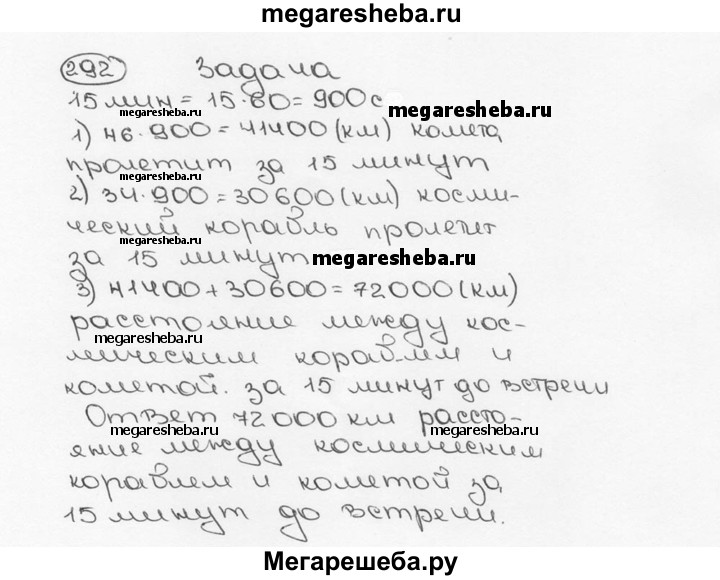 megaresheba.ru
292 Задача
15 мин = 15·60 = 900 с
megaresheba.ru
megaresheba.ru
1) 46·900 = 41400 (км) комета
пролетит за 15 минут
2) 34·900 = 30600 (км) косми-
ческий корабль пролетит
megaresheba.ru
за 15 минут
megaresheba.ru
3) 41400 + 30600 = 72000 (км)
расстояние между кос-
megaresheba.ru
мическим кораблем и
кометой. за 15 минут до встречи
Ответ 72000 км рассто-
megaresheba.ru
megaresheba.ru
яние между космическим
кораблем и кометой за
15 минут до встречи.
Мегарешеба.ру